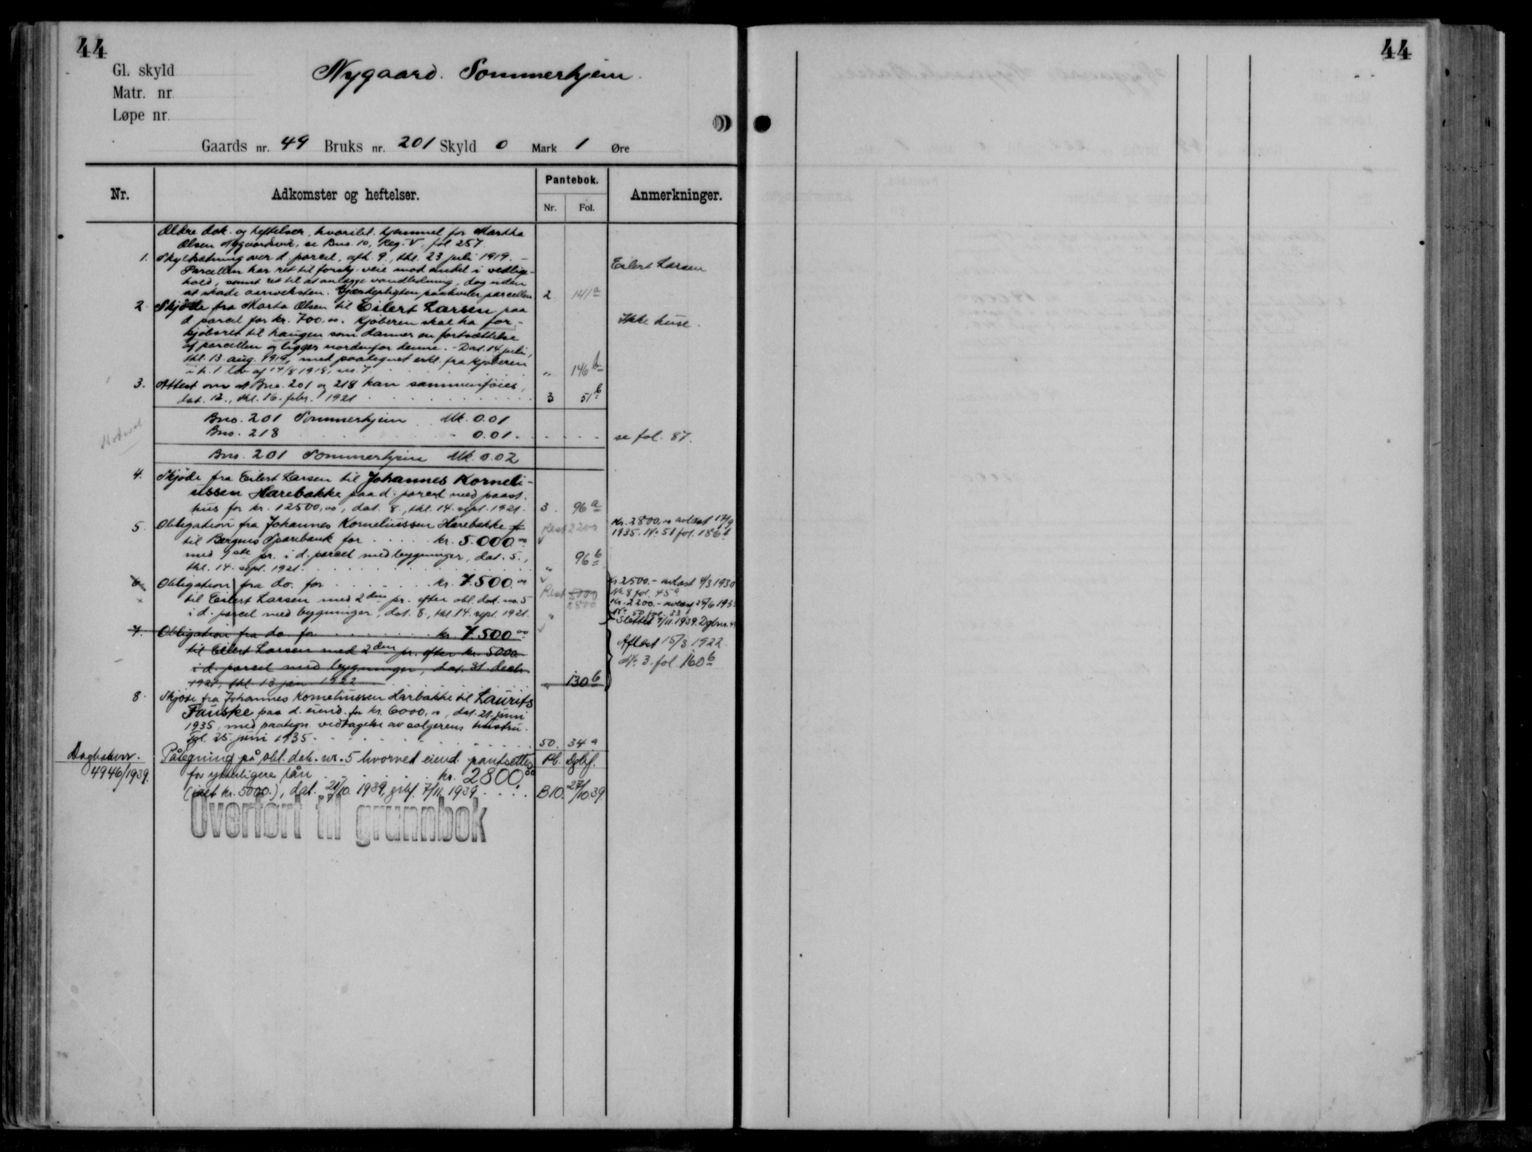 44
44
Gl. skyld
Nygaard. Sommerhjem.
Matr. nr.
Løpe nr.
Gaards nr. 49 Bruks nr. 201 Skyld 0 Mark 1 Øre
Nr. Adkomster og heftelser. Pantebok. Anmerkninger.
Nr. Fol.
Ældre dok. og heftelser, hvoriblt. hjemmel for Martha
Olsen se Bno. 10, Reg. V, fol 257
1. Skyldseltning over d. parcel, afh. 9, thl. 23 juli 1919. - Eilert Larsen
Parcellen har ret til forsky. veie mod andel i vedlige-
hold, samt ret til at anlægge vandledning, dog uden
at skade aarveksten. Gjerdepligten paahviler parcellen 2 141a
2 Skjøde fra Marta Olsen til Eilert Larsen paa
d. parcel for kr. 700,00. Kjøberen skal ha for- Ikke huse.
kjøbsret til haugen som danner en fortsættelse
af parcellen og ligger nordenfor denne. - Dat. 14 juli,
thl. 13 aug. 1919, med paategnet erkl. fra kjøberen
" 146b
3. Attest over at Bno. 201 og 218 kan sammenføies,
dat. 12., thl. 16. febr. 1921 3 51b
Bno. 201 Sommerhjem Mk. 0.01
Bno. 218 " 0.01. se fol. 87.
Bno. 201 Sommerhjem Mk. 0.02
4. Skjøde fra Eilert Larsen til Johannes Korneli-
ussen Harebakke paa d. parcel med paast.
hus for kr. 12500,00, dat. 8, thl. 14. sept. 1921. 3. 96a
5. Obligation fra Johannes Korneliussen Harebakke Rest 2200 Kr. 2800,00 avlæst 17/9
til Bergens Sparebank for kr. 5.000,00 1935. Nr. 51 fol. 186b
med 1ste pr. i d. parcel med bygninger, dat. 5., " 96b
thl. 14. sept. 1921
6. Obligation fra do. for kr. 7500,00 Rest 5000 Kr. 2500.- avlæst 4/3 1930
til Eilert Larsen med 2den pr. efter obl. dok. no. 5 2800 Nr. 8 fol. 45a
i d. parcel med bygninger, dat. 8, thl. 14. sept. 1921. Kr. 2200.-
Slettet 7/11 1939. Dgbnr.
7. Obligation fra do for kr. 7.500,00
til Eilert Larsen med 2den pr. efter kr. 5000 Aflæst 15/3 1922
i d. parcel med bygninger, dat. 31 decbr. Nr. 3. fol 160b
1921, thl 13 jan 1922 " 130b
8. Skjøte fra Johannes Korneliussen Harbakke til Laurits
Fauske paa d. eiend. for kr. 6000,00, dat. 21 juni
1935, med paategn. vedtagelse av sælgerens hustru.
tgl. 25 juni 1935 50. 34a
Dagboknr. Påtegning på obl. dok. nr. 5 hvorved eiend. pantsettes Pb. Dgbf.
4946/1939. for ytterligere lån kr. 2800,00
(ialt kr. 5000.), dat. 21/10 1939, 7/11 1939 B10. 27/10 39
Overført til grunnbok